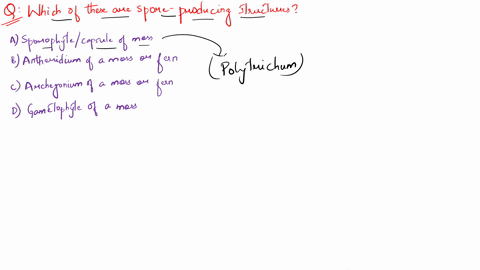 Q: Which of these are spore-producing structures?
A) Sporophyte/capsule of moss
(Polytrichum)
B) Antheridium of a moss or fern
C) Archegonium of a moss or fern
D) Gametophyte of a moss